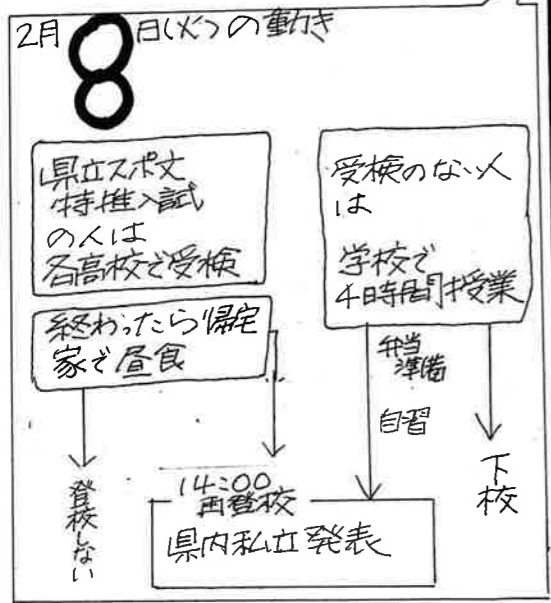 2月8日(火)の動き
県立スポ文
特推入試
の人は
各高校で受検
終わったら帰宅
家で昼食
登校しない
受検のない人
は
学校で
4時間授業
弁当
準備
自習
下校
14:00
再登校
県内私立発表